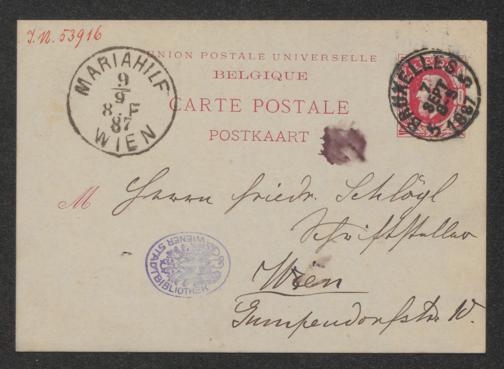 I.N. 53916
UNION POSTALE UNIVERSELLE
BELGIQUE
CARTE POSTALE
POSTKAART
MARIAHILF
9/9
8.F
87
WIEN
BRUXELLES 5
7 SEPT
1887
M Herrn Friedr. Schlögl
Schriftsteller
Wien
Gumpendorfstr. 10.
WIENER STADTBIBLIOTHEK